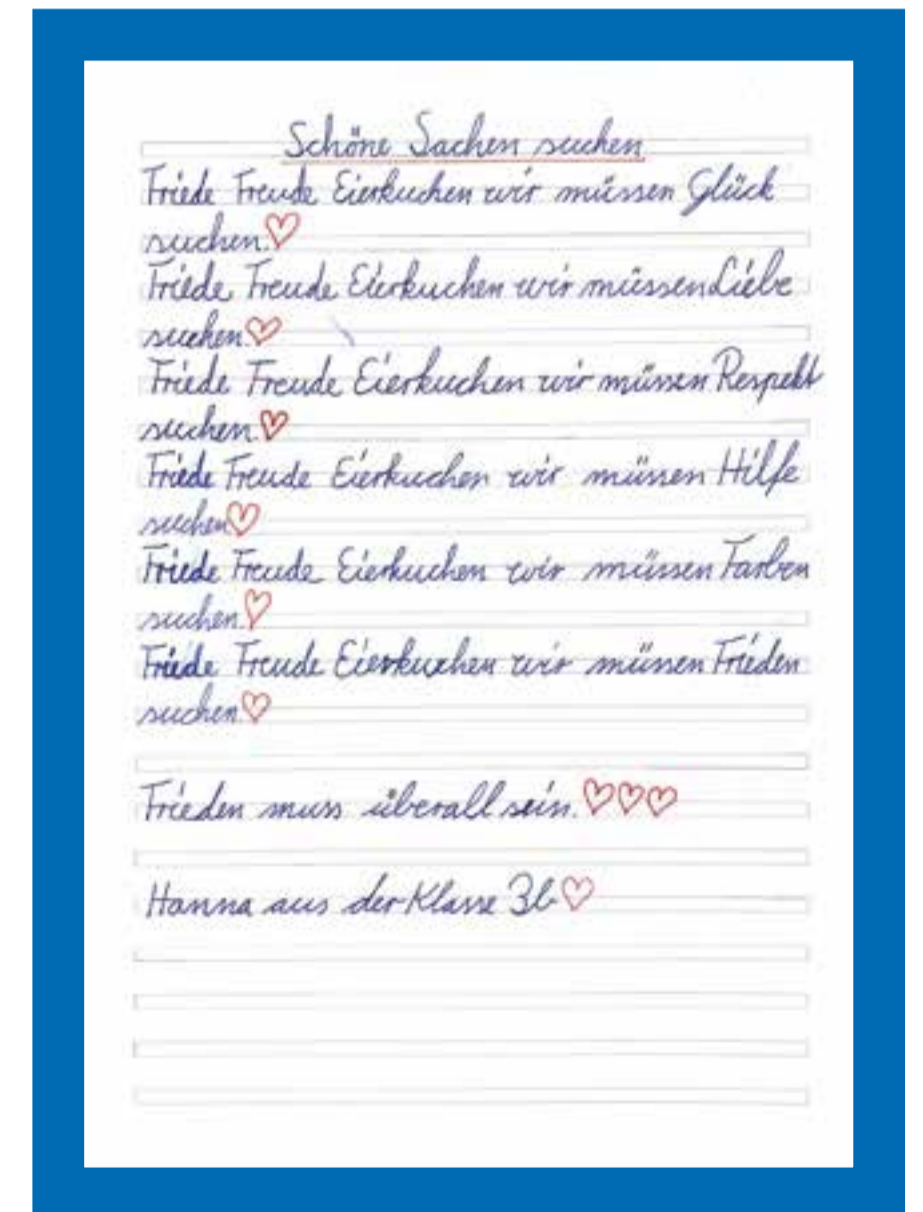 Schöne Sachen suchen
Friede Freude Eierkuchen wir müssen Glück
suchen.♡
Friede Freude Eierkuchen wir müssen Liebe
suchen♡
Friede Freude Eierkuchen wir müssen Respekt
suchen.♡
Friede Freude Eierkuchen wir müssen Hilfe
suchen♡
Friede Freude Eierkuchen wir müssen Farben
suchen.♡
Friede Freude Eierkuchen wir müssen Frieden
suchen♡
Frieden muss überall sein.♡♡♡
Hanna aus der Klasse 3b♡